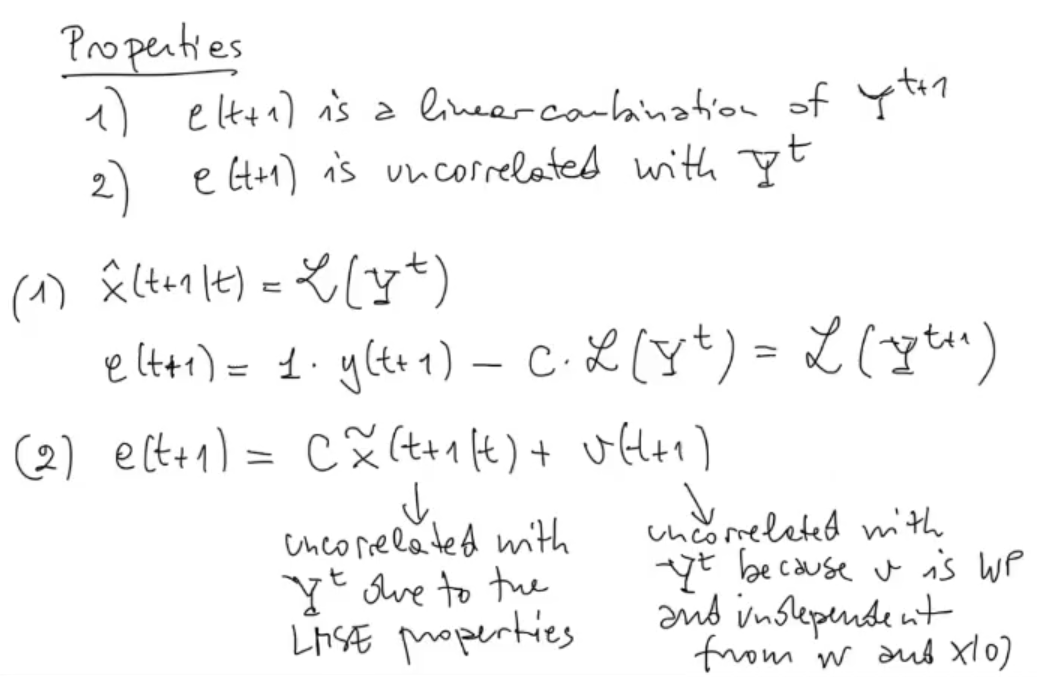 Properties
1) e(t+1) is a linear combination of Y^{t+1}
2) e(t+1) is uncorrelated with Y^t
(1) x̂(t+1|t) = ℒ(Y^t)
e(t+1) = 1· y(t+1) – C·ℒ(Y^t) = ℒ(Y^{t+1})
(2) e(t+1) = C x̃(t+1|t) + v(t+1)
↓ ↘
uncorrelated with
Y^t due to the
LMSE properties
uncorrelated with
Y^t because v is WP
and independent
from w and x(0)